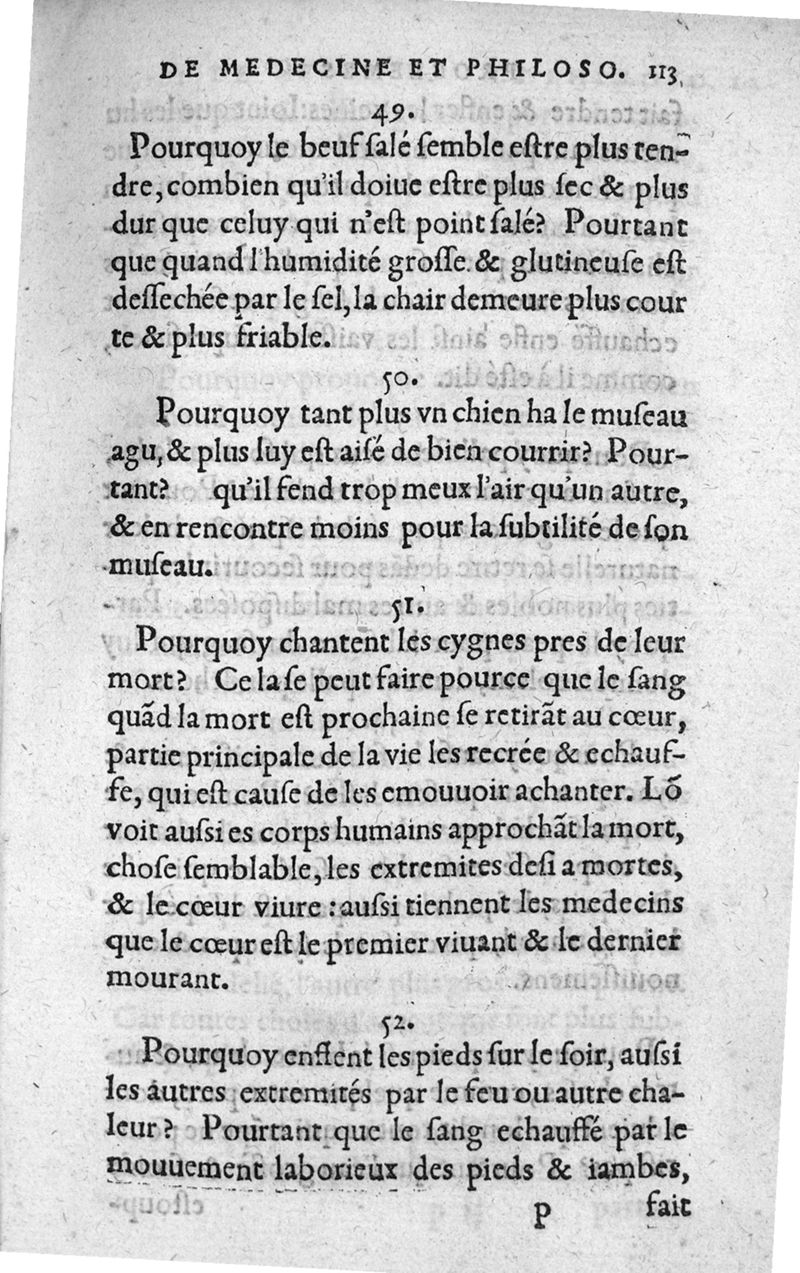 DE MEDECINE ET PHILOSO. 113
49.
Pourquoy le beuf ſalé ſemble eſtre plus ten-
dre, combien qu'il doiue eſtre plus ſec & plus
dur que celuy qui n'eſt point ſalé? Pourtant
que quand l'humidité groſſe & glutineuſe eſt
deſſechée par le ſel, la chair demeure plus cour
te & plus friable.
50.
Pourquoy tant plus vn chien ha le muſeau
agu, & plus luy eſt aiſé de bien courrir? Pour-
tant? qu'il fend trop meux l'air qu'un autre,
& en rencontre moins pour la ſubtilité de ſon
muſeau.
51.
Pourquoy chantent les cygnes pres de leur
mort? Ce la ſe peut faire pource que le ſang
quãd la mort eſt prochaine ſe retirãt au cœur,
partie principale de la vie les recrée & echauf-
fe, qui eſt cauſe de les emouuoir achanter. Lõ
voit auſsi es corps humains approchãt la mort,
choſe ſemblable, les extremites deſi a mortes,
& le cœur viure : auſsi tiennent les medecins
que le cœur eſt le premier viuant & le dernier
mourant.
52.
Pourquoy enflent les pieds ſur le ſoir, auſsi
les autres extremités par le feu ou autre cha-
leur? Pourtant que le ſang echauffé par le
mouuement laborieux des pieds & iambes,
P fait